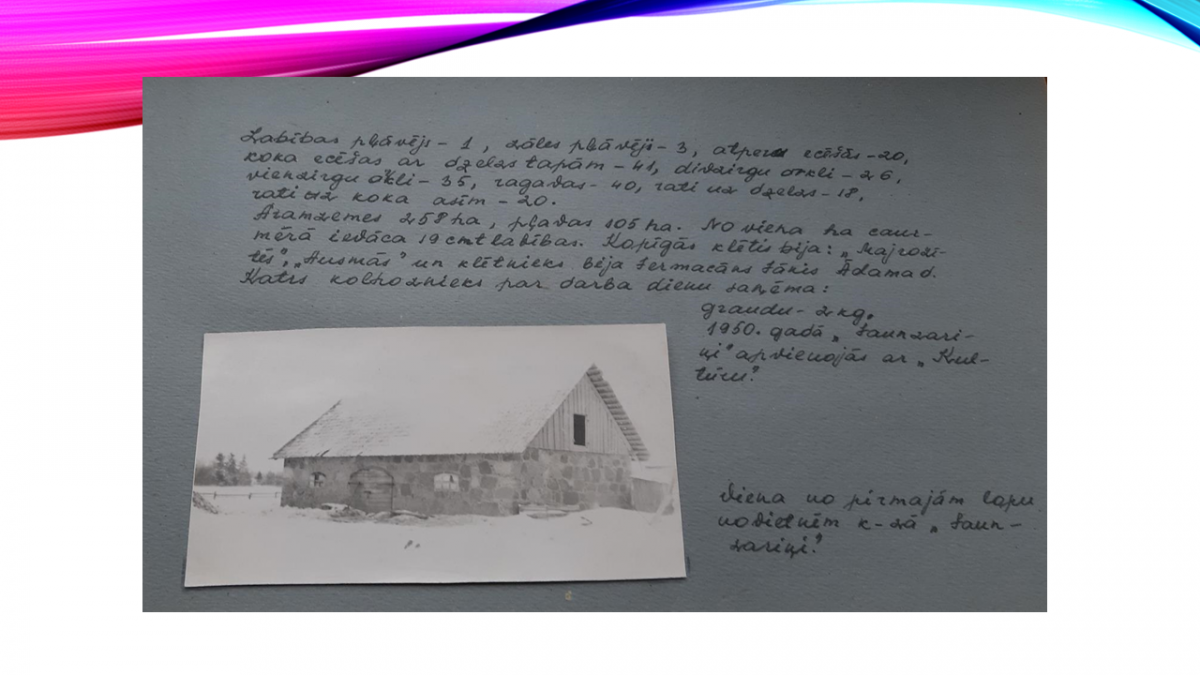 Labības pļāvējs - 1, zāles pļāvēji - 3, atperu ecēšas - 20,
koka ecēšas ar dzelzs tapām - 41, divzirgu arkli - 26,
vienzirgu arkli - 35, ragavas - 40, rati uz dzelzs - 18,
rati uz koka asīm - 20.
Aramzemes 258 ha, pļavas 105 ha. No viena ha caur-
mērā ievāca 19 cnt labības. Kopīgās klētis bija: „Majrozī-
tēs", „Ausmās" un klētnieks bija Jermacāns Jānis Ādama d.
Katrs kolhoznieks par darba dienu saņēma:
graudu - 2 kg.
1950. gadā „Jaunzari-
ņi" apvienojās ar „Kul-
tūru".
Viena no pirmajām lopu
novietnēm k-zā „Jaun-
zariņi".